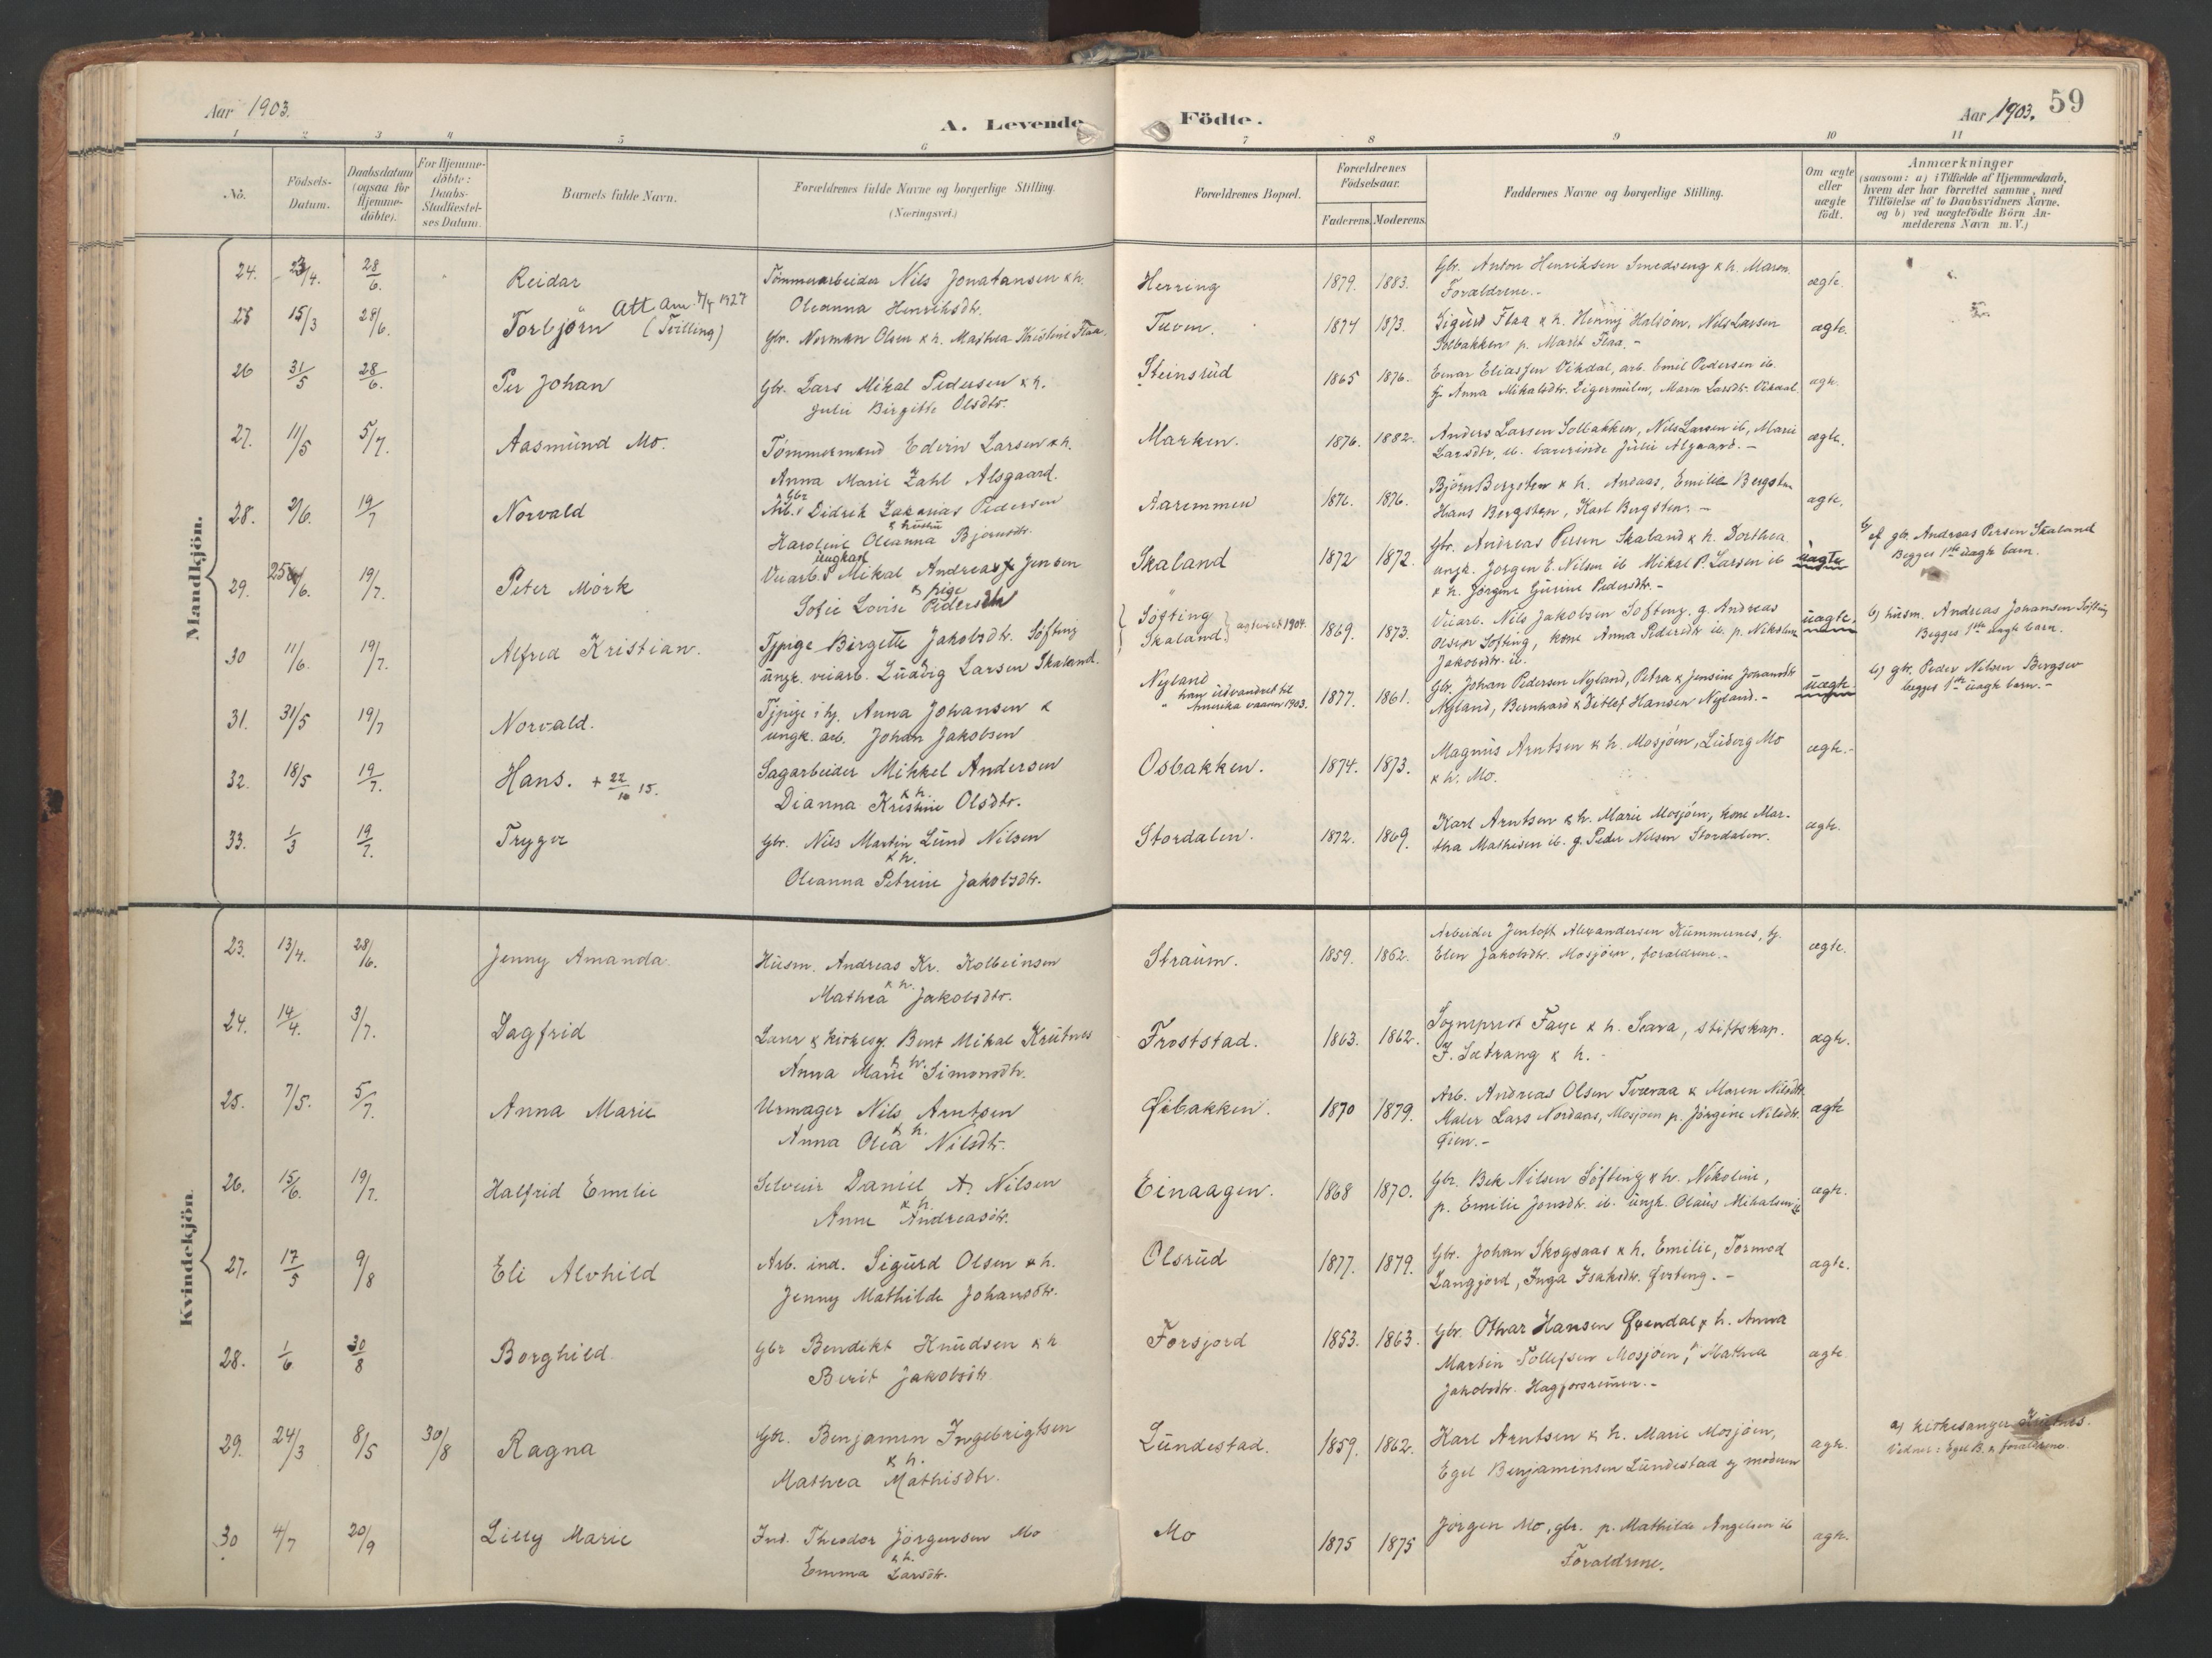 Aar 1903.
A. Levende Födte.
Aar 1903. 59
1 2 3 4 5 6 7 8 9 10 11
No.
Födsels-Datum.
Daabsdatum (ogsaa for Hjemme-döbte).
For Hjemme-döbte: Daabs-Stadfæstel-ses Datum.
Barnets fulde Navn.
Forældrenes fulde Navne og borgerlige Stilling.
(Næringsvei.)
Forældrenes Bopæl.
Forældrenes Födselsaar.
Faderens Moderens
Faddernes Navne og borgerlige Stilling.
Om ægte eller uægte födt.
Anmærkninger
(saasom: a) i Tilfælde af Hjemmedaab, hvem der har forrettet samme, med Tilföielse af to Daabsvidners Navne, og b) ved uægtefödte Börn An-melderens Navn m. V.)
Mandkjön.
24. 23/4. 28/6. Reidar Tömmerarbeider Nils Jonatansen & h. Herring 1879. 1883. Gbr. Anton Henriksen Smedseng & h. Maren. ægte.
Oleanna Henriksdtr. Forældrene.-
Att. Am. 1927
25 15/3 28/6. Torbjörn (Tvilling) Gbr. Norman Olsen & h. Mathea Kristine Flaa. Tuven. 1874 1873. Sigurd Flaa & h. Nils Larsen ægte.
Solbakken p. Marit Flaa.-
26 31/5 28/6. Per Johan Gbr. Lars Mikal Pedersen & h. Steinsrud 1865 1876. Einar Eliassen Vikdal, arb. Emil Pedersen ib. ægte.
Julie Birgitte Olsdtr. Anna Mikalsdtr. Maren Larsdtr. Vikdal
27. 11/5 5/7. Aasmund Mo. Tömmermand Edvin Larsen & h. Marken. 1876. 1882. Anders Larsen Solbakken, Nils Larsen ib, Marie ægte.
Anna Marie Zahl Alsgaard. Larsdtr, ib. lærerinde Julie Alsgaard.-
28. 2/6. 19/7 Norvald Arb. & Gbr Didrik Zakarias Pedersen Aaremmen 1876. 1876. Björn Bergsten & h. Andaas, Emilie Bergsten ægte.
& hustru
Karoline Oleanna Björnsdtr. Hans Bergsten, Karl Bergsten.-
29. 25/6. 19/7. Peter Mörk Veiarb. ungkarl Mikal Andreas Jensen Skaland 1872 1872. Gbr. Andreas Persen Skaland & h. Dorthea uægte b/ af gbr. Andreas Persen Skaland
& pige
Sofie Lovise Pedersdtr ungk. Jörgen E. Nilsen ib Mikal P. Larsen ib Begges 1ste uægte barn.
& h. Jörgine Gurine Pedersdtr.-
30 11/6. 19/7. Alfred Kristian. Tjpige Birgitte Jakobsdtr. Söfting Söfting 1869. 1873. Veiarb. Nils Jakobsen Söfting, g. Andreas uægte. b) husm. Andreas Johansen Söfting
ungk. veiarb. Ludvig Larsen Skaland. Skaland. 1904. Olsen Söfting, kone Anna Pedersdtr ib. p. Begges 1ste uægte barn.
Jakobsdtr. ib.
31. 31/5 19/7 Norvald. Tjpige i hj. Anna Johansen & Nyland 1877. 1861. Gbr. Johan Pedersen Nyland, Petra & Jensine Johansdtr uægte. b) gbr. Peder Nilsen Bergsev
ungk. arb. Johan Jakobsen han udvandret til Amerika vaaren 1903. Nyland, Bernhard & Ditlef Hansen Nyland.- begges 1ste uægte barn.-
32. 18/5 19/7. Hans. + 22/10 15. Sagarbeider Mikkel Andersen Osbakken. 1874. 1873. Magnus Arntsen & h. Mosjöen, Ludvig Mo ægte.-
& h.
Dianna Kristine Olsdtr. & h. Mo.
33. 1/3 19/7. Trygve Gbr. Nils Martin Lund Nilsen Stordalen. 1872. 1869. Karl Arntsen & h. Marie Mosjöen, kone Mar- ægte.
& h.
Oleanna Petrine Jakobsdtr. tha Mathisen ib. g. Peder Nilsen Stordalen.
Kvindekjön.
23. 13/4. 28/6. Jenny Amanda Husm. Andreas Kr. Kolbeinsen Straum. 1859. 1862. Arbeider Jentoft Alexandersen ægte.
& h.
Mathea Jakobsdtr. Elen Jakobsdtr. Mosjöen, forældrene.-
24. 14/4. 3/7. Dagfrid Lærer & kirkesg. Bent Mikal Krutnes Froststad. 1863. 1862. Sogneprest Faye & h. Seava, stiftskap. ægte.
& h.
Anna Marie Simonsdtr. F. Sætrang & h.
25. 7/5. 5/7. Anna Marie Urmager Nils Arntsen Öibakken. 1870 1879. Arb. Andreas Olsen Tveraa & Maren Nilsdtr. ægte
& h.
Anna Olea Nilsdtr. Maler Lars Nordaas, Mosjöen p. Jörgine Nilsdtr.
Öien.-
26. 15/6. 19/7. Halfrid Emilie Selveier Daniel A. Nilsen Einaagen. 1868 1870. Gbr. Bek Nilsen Söfting & h. Nikoline, ægte.
& h.
Anne Andreasdtr. p. Emilie Jonsdtr. ib. ungk. Olaus Mikalsen ib
27. 17/5 9/8 Eli Alvhild Arb. ind. Sigurd Olsen & h. Olsrud 1877. 1879. Gbr. Johan Skogsaas & h. Emilie, Tormod ægte.
Jenny Mathilde Johansdtr. Langjord, Inga Isaksdtr.
28. 1/6 30/8 Borghild. Gbr Bendikt Knudsen & h Forsjord 1853. 1863. Gbr. Othar Hansen & h. Anna ægte.
Berit Jakobsdtr Martin Tollefsen Mosjöen, Mathea
Jakobsdtr.
29. 24/3 8/5 30/8 Ragna Gbr. Benjamin Ingebrigtsen Lundestad. 1859. 1862. Karl Arntsen & h. Marie Mosjöen, ægte. a) kirkesanger Krutnes.
& h.
Mathea Mathisdtr. Egil Benjaminsen Lundestad & moderen Vidner: Egil B. & forældrene.
30 4/7 20/9 Lilly Marie Ind. Theodor Jörgensen Mo Mo 1875 1875 Jörgen Mo, gbr. p. Mathilde Angelsen ib ægte.
& h.
Emma Larsdtr. Forældrene.